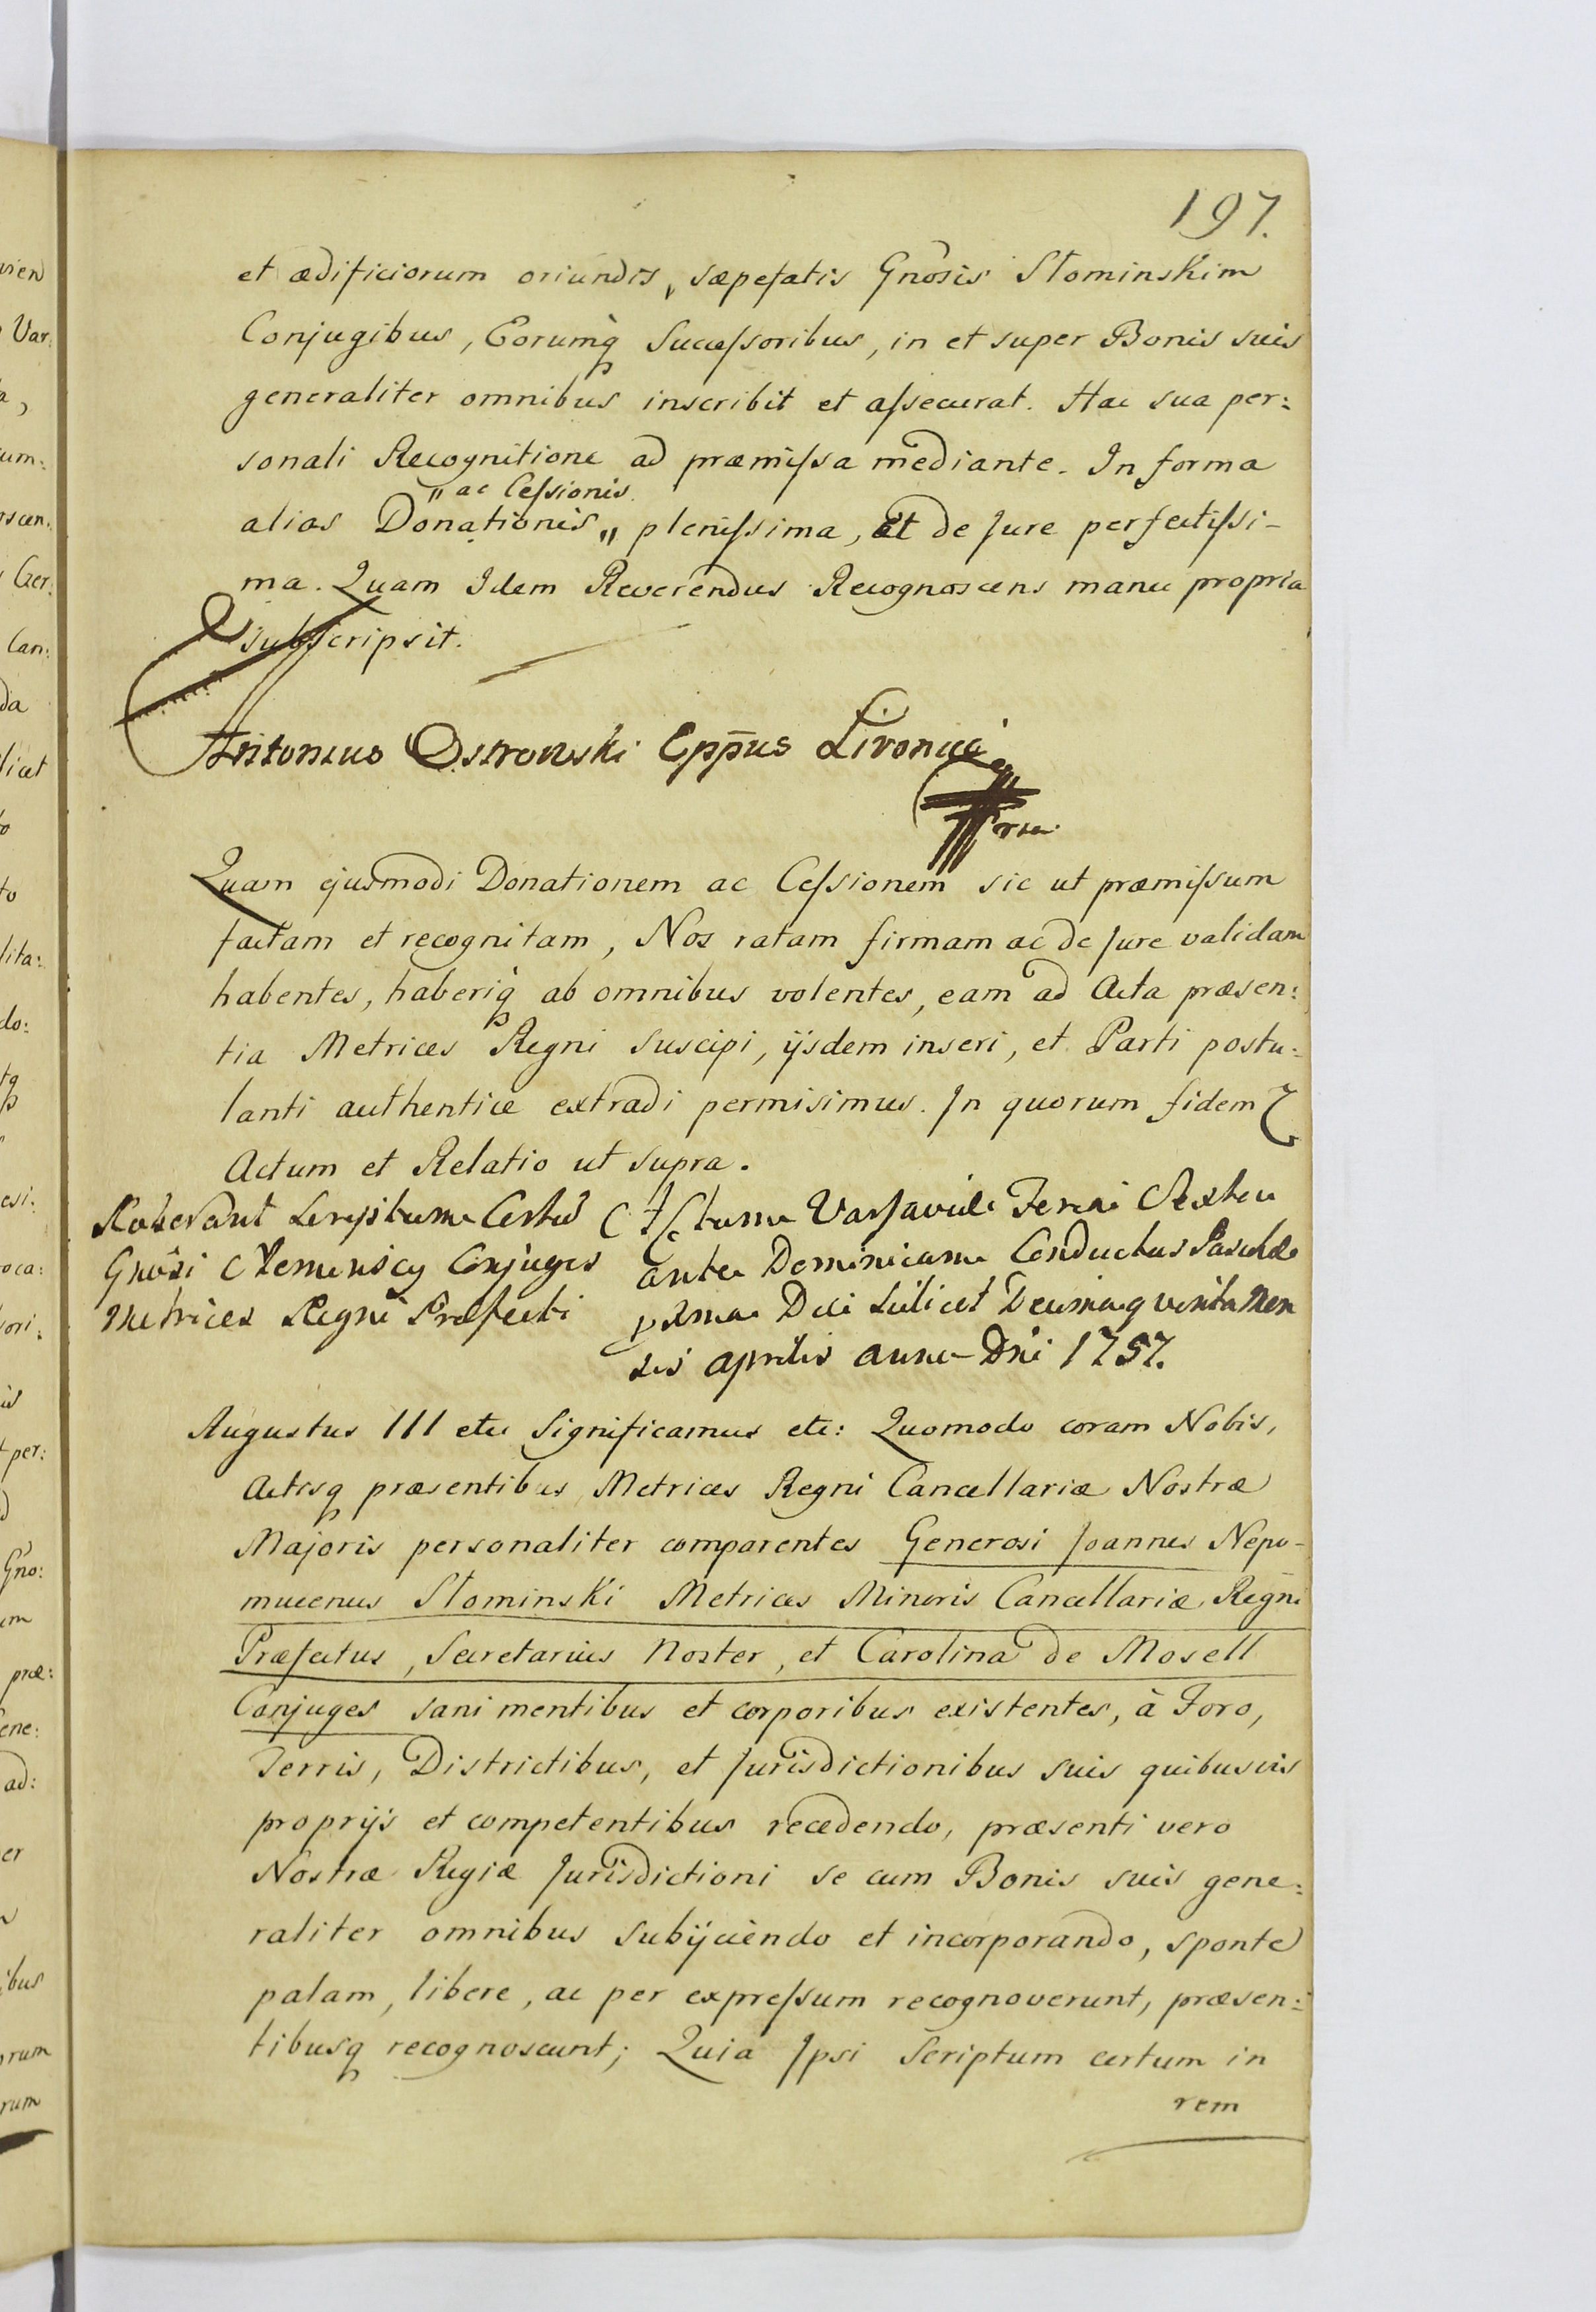 197.
et ædificiorum oriundis, sæpefatis Gnosis Słominskim
Conjugibus, Eorumq̀ Successoribus, in et super Bonis suis
generaliter omnibus inscribit et assecurat. Hac sua per:
sonali Recognitione ad præmissa mediante. In forma
" ac Cessionis
alias Donationis " plenissima, et de Jure perfectissi-
ma. Quam Idem Reverendus Recognoscens manu propria
subscripsit.
Antonius Ostrowski Epp̄us Livoniæ
mp
Quam ejusmodi Donationem ac Cessionem sic ut præmissum
factam et recognitam, Nos ratam firmam ac de Jure validam
habentes, haberiq̀ ab omnibus volentes, eam ad Acta præsen:
tia Metrices Regni suscipi, ijsdem inseri, et Parti postu:
lanti authentice extradi permisimus. In quorum fidem
Actum et Relatio ut supra.
Roborant Scriptum Certum
Gnosi Słominscy Conjuges
Metrices Regni Præfecti
Actum Varsaviæ Feria Sexta
ante Dominicam Conductus Paschæ
prima Die scilicet Decimaq vinta Men
sis aprilis anno Dni 1757.
Augustus III etc Significamus etc: Quomodo coram Nobis,
Actisq præsentibus Metrices Regni Cancellariæ Nostræ
Majoris personaliter comparentes Generosi Joannes Nepo-
mucenus Słominski Metrices Minoris Cancellariæ Regni
Præfectus, Secretarius Noster, et Carolina de Mosell
Conjuges sani mentibus et corporibus existentes, à Foro,
Terris, Districtibus, et Jurisdictionibus suis quibusvis
proprijs et competentibus recedendo, præsenti vero
Nostræ Regiæ Jurisdictioni se cum Bonis suis gene:
raliter omnibus subijciendo et incorporando, sponte
palam, libere, ac per expressum recognoverunt, præsen:
tibusq recognoscunt; Quia Ipsi Scriptum certum in
rem